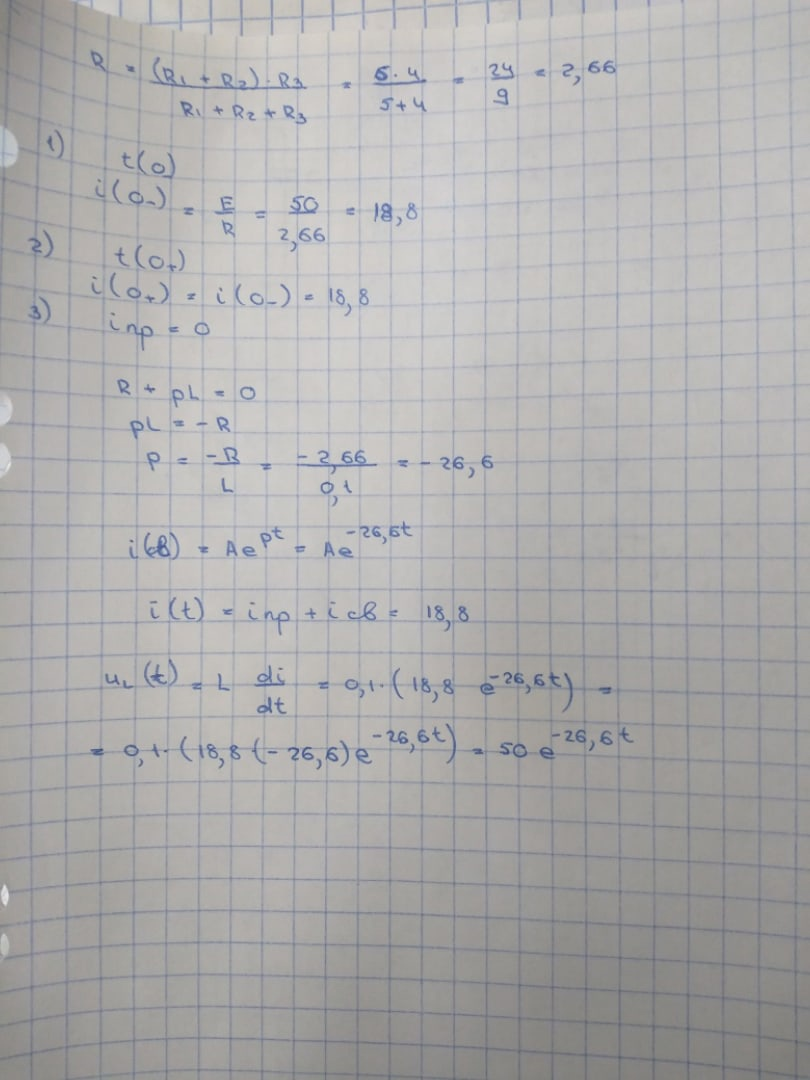 R = (R₁ + R₂) · R₃ / R₁ + R₂ + R₃ = 6 · 4 / 5 + 4 = 24 / 9 = 2,66
1) t(0)
i(0₋) = E / R = 50 / 2,66 = 18,8
2) t(0₊)
i(0₊) = i(0₋) = 18,8
3) i пр = 0
R + pL = 0
pL = - R
p = -R / L = - 2,66 / 0,1 = - 26,6
i(св) = Ae^pt = Ae^-26,6t
i(t) = i пр + i св = 18,8
u_L(t) = L di / dt = 0,1 · (18,8 e^-26,6t) =
= 0,1 · (18,8 (- 26,6) e^-26,6t) = 50 e^-26,6t